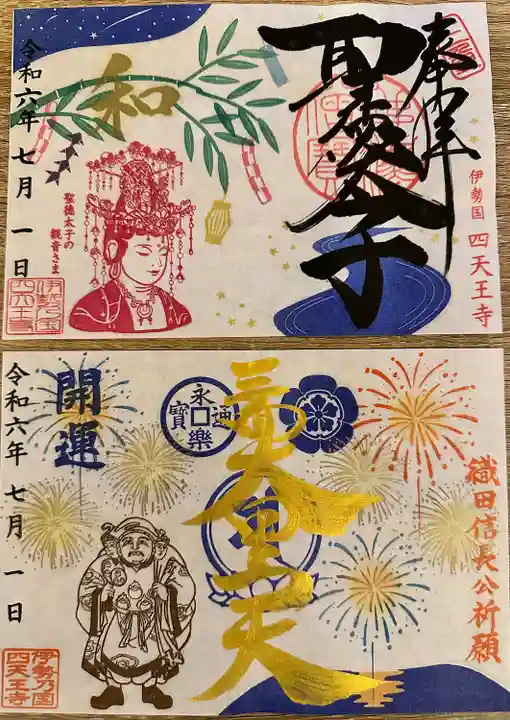 奉拝
聖徳太子
伊勢国 四天王寺
和
聖徳太子の
観音さま
令和六年 七月 一日
伊勢乃国
四天王寺
織田信長公祈願
永樂通寶
開運
令和六年 七月 一日
伊勢乃国
四天王寺